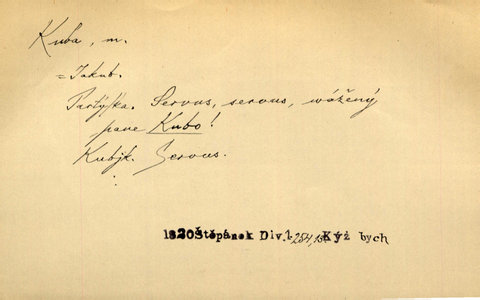 Kuba, m.
= Jakub.
Partyſka. Servus, servus, wážený
pane Kubo!
Kubjk. Servus.
1820 Štěpánek Div. 1, 254, Kýž bych